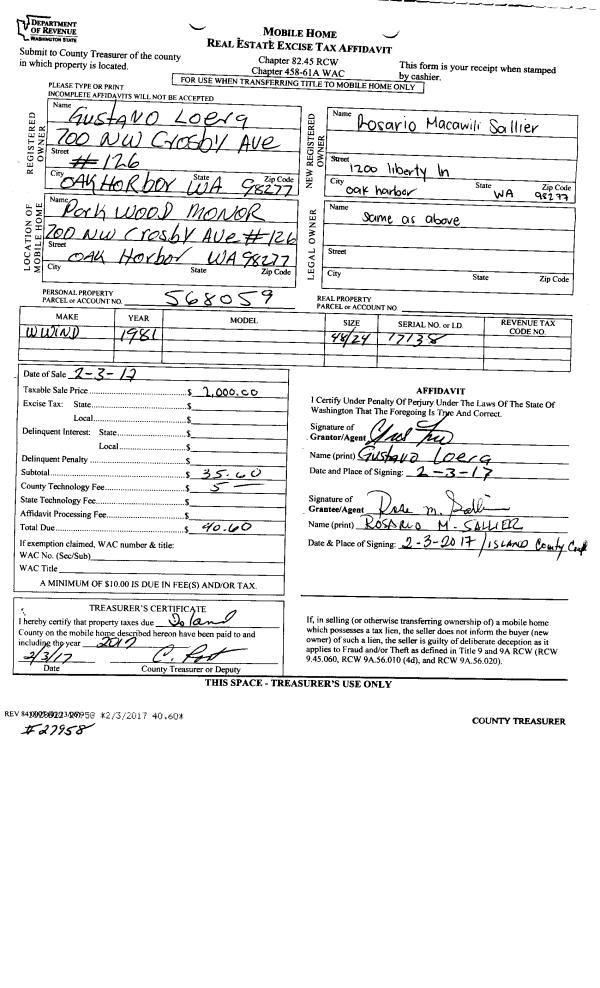 DEPARTMENT
OF REVENUE
WASHINGTON STATE
MOBILE HOME
REAL ESTATE EXCISE TAX AFFIDAVIT
Submit to County Treasurer of the county
in which property is located.
Chapter 82.45 RCW
Chapter 458-61A WAC
This form is your receipt when stamped
by cashier.
FOR USE WHEN TRANSFERRING TITLE TO MOBILE HOME ONLY
PLEASE TYPE OR PRINT
INCOMPLETE AFFIDAVITS WILL NOT BE ACCEPTED
REGISTERED
OWNER
Name Gustavo Loerg
700 NW Crosby Ave
Street
# 126
City State Zip Code
OAK HARBOR WA 98277
NEW REGISTERED
OWNER
Name
Rosario Macawili Sallier
Street
1200 liberty ln
City State Zip Code
oak harbor WA 98277
LOCATION OF
MOBILE HOME
Name
Park WOOD MONOR
700 NW Crosby Ave # 126
Street
OAK Harbor WA 98277
City State Zip Code
LEGAL OWNER
Name
Same as above
Street
City State Zip Code
PERSONAL PROPERTY
PARCEL or ACCOUNT NO. 568059
REAL PROPERTY
PARCEL or ACCOUNT NO.
MAKE YEAR MODEL SIZE SERIAL NO. or I.D. REVENUE TAX
CODE NO.
WWIND 1981 48/24 17138
Date of Sale 2-3-17
Taxable Sale Price $ 2,000.00
Excise Tax: State $
Local $
Delinquent Interest: State $
Local $
Delinquent Penalty $
Subtotal $ 35.60
County Technology Fee $ 5 —
State Technology Fee $
Affidavit Processing Fee $
Total Due $ 40.60
If exemption claimed, WAC number & title:
WAC No. (Sec/Sub)
WAC Title
A MINIMUM OF $10.00 IS DUE IN FEE(S) AND/OR TAX.
AFFIDAVIT
I Certify Under Penalty Of Perjury Under The Laws Of The State Of
Washington That The Foregoing Is True And Correct.
Signature of
Grantor/Agent
Name (print) Gustavo Loerg
Date and Place of Signing: 2-3-17
Signature of
Grantee/Agent Rose M. Sallier
Name (print) ROSARIO M. SALLIER
Date & Place of Signing: 2-3-2017 / ISLAND County
TREASURER'S CERTIFICATE
I hereby certify that property taxes due Island
County on the mobile home described hereon have been paid to and
including the year 2017
2/3/17 C.
Date County Treasurer or Deputy
If, in selling (or otherwise transferring ownership of) a mobile home
which possesses a tax lien, the seller does not inform the buyer (new
owner) of such a lien, the seller is guilty of deliberate deception as it
applies to Fraud and/or Theft as defined in Title 9 and 9A RCW (RCW
9.45.060, RCW 9A.56.010 (4d), and RCW 9A.56.020).
THIS SPACE - TREASURER'S USE ONLY
REV 84 27958 *2/3/2017 40.60*
#27958
COUNTY TREASURER